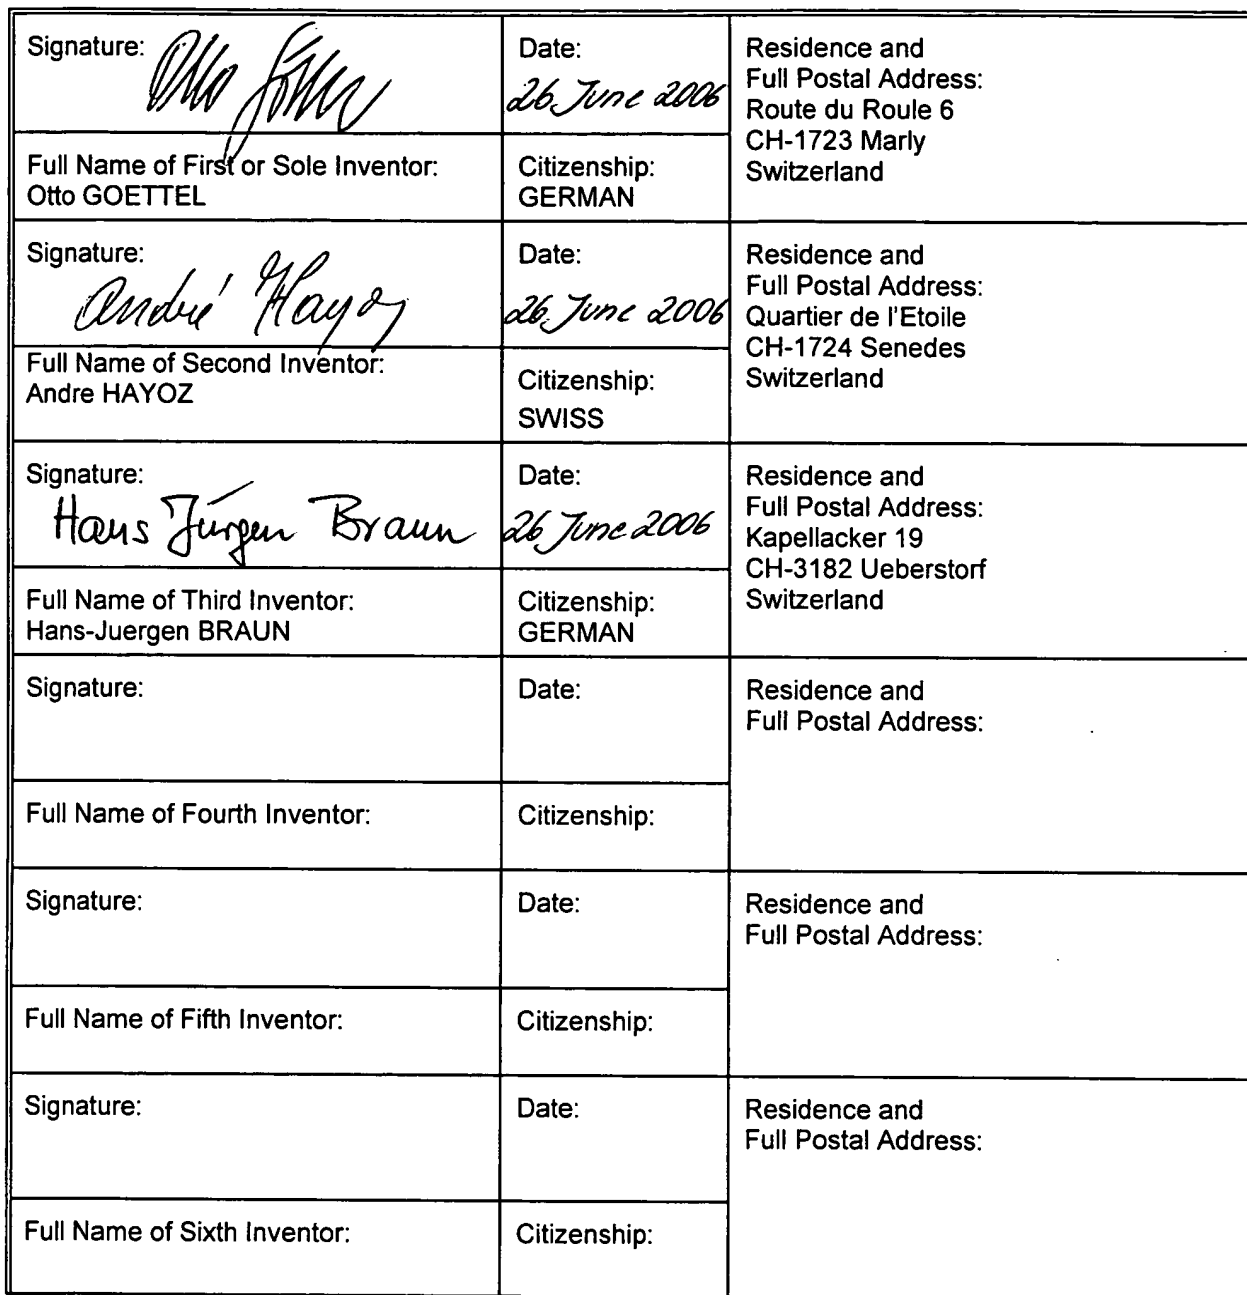 Signature:
Otto
Date:
26 June 2006
Residence and
Full Postal Address:
Route du Roule 6
CH-1723 Marly
Switzerland
Full Name of First or Sole Inventor:
Otto GOETTEL
Citizenship:
GERMAN
Signature:
André Hayoz
Date:
26 June 2006
Residence and
Full Postal Address:
Quartier de l'Etoile
CH-1724 Senedes
Switzerland
Full Name of Second Inventor:
Andre HAYOZ
Citizenship:
SWISS
Signature:
Hans Jürgen Braun
Date:
26 June 2006
Residence and
Full Postal Address:
Kapellacker 19
CH-3182 Ueberstorf
Switzerland
Full Name of Third Inventor:
Hans-Juergen BRAUN
Citizenship:
GERMAN
Signature:
Date:
Residence and
Full Postal Address:
Full Name of Fourth Inventor:
Citizenship:
Signature:
Date:
Residence and
Full Postal Address:
Full Name of Fifth Inventor:
Citizenship:
Signature:
Date:
Residence and
Full Postal Address:
Full Name of Sixth Inventor:
Citizenship: